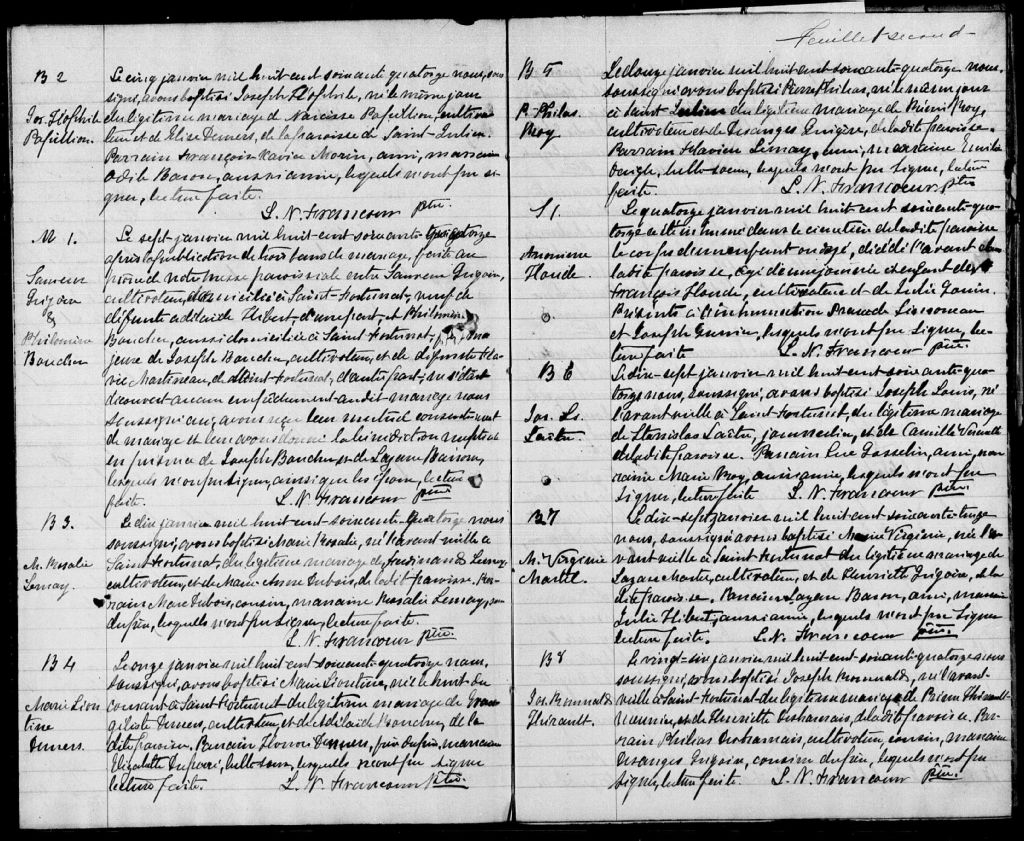 Feuillet second
B 2
Jos. Théophile
Pafullion.
Le cinq janvier mil huit cent soixante quatorze nous, sous
signé, avons baptisé Joseph Théophile, né le même jour
du légitime mariage de Narcisse Pafullion, cultiva-
teur et de Elise Demers, de la paroisse de Saint-Julien.
Parrain François Xavier Morin, ami, marraine
Odile Baron, aussi amie, lesquels n'ont pu si-
gner, lecture faite.
L. N. Francoeur ptre.
M 1.
Grégoire
&
Philomène
Boucher
Le sept janvier mil huit cent soixante quatorze
après la publication de trois bans de mariage, faite au
prône de notre messe paroissiale entre Grégoire,
cultivateur, domicilié à Saint-Fortunat, veuf de
défunte Adelaide Hébert d'une part et Philomène
Boucher, aussi domiciliée à Saint-Fortunat, fille ma-
jeure de Joseph Boucher, cultivateur, et de défunte Fla-
vie Martineau, de Saint-Fortunat, d'autre part, ne s'étant
découvert aucun empêchement au dit mariage nous
soussigné curé, avons reçu leur mutuel consentement
de mariage et leur avons donné la bénédiction nuptiale
en présence de Joseph Boucher, et de Lazare Baron,
lesquels n'ont pu signer, ainsi que les époux, lecture
faite. L. N. Francoeur ptre.
B 3.
M. Rosalie
Lemay.
Le dix janvier mil huit cent soixante-quatorze nous
soussigné, avons baptisé Marie Rosalie, née l'avant veille à
Saint-Fortunat, du légitime mariage de Ferdinand Lemay,
cultivateur, et de Marie Anne Dubois, de la dite paroisse. Par-
rain Marc Dubois, cousin, marraine Rosalie Lemay, soeur
du père, lesquels n'ont pu signer, lecture faite.
L. N. Francoeur ptre.
B 4
Marie Léon
tine
Demers.
Le onze janvier mil huit cent soixante-quatorze nous,
soussigné, avons baptisé Marie Léontine, née le huit du
courant à Saint-Fortunat du légitime mariage de Evan-
géliste Demers, cultivateur, et de Adelaide Boucher, de la
dite paroisse. Parrain Honoré Demers, frère du père, marraine
Elizabeth Dupéré, belle soeur, lesquels n'ont pu signer
lecture faite. L. N. Francoeur Ptre.
B 5
P. Philéas
Roy
Le douze janvier mil huit cent soixante-quatorze nous.
soussigné avons baptisé Pierre Philéas, né le même jour
à Saint-Julien du légitime mariage de Rémi Roy,
cultivateur et de Desanges Grégoire, de la dite paroisse.
Parrain Flavien Lemay, ami, marraine Emilie
Daigle, belle soeur, lesquels n'ont pu signer, lecture
faite. L. N. Francoeur ptre
S 1.
Anonime
Houde
Le quatorze janvier mil huit cent soixante-qua-
torze a été inhumé dans le cimetière de la dite paroisse
le corps d'un enfant ondoyé, décédé l'avant
la dite paroisse, agé d'une journée et enfant de
François Houde, cultivateur et de Julie Gouin.
Présents à l'inhumation Prosper Croisseau
et Joseph Gosselin, lesquels n'ont pu signer, lec-
ture faite L. N. Francoeur ptre.
B 6
Jos. Ls.
Caître
Le dix-sept janvier mil huit cent soixante-qua-
torze nous, soussigné, avons baptisé Joseph Louis, né
l'avant veille à Saint-Fortunat, du légitime mariage
de Stanislas Caître, journalier, et de Camille
de la dite paroisse. Parrain Luc Gosselin, ami, mar-
raine Marie Roy, aussi amie, lesquels n'ont pu
signer, lecture faite L. N. Francoeur ptre
B 7
M. Virginie
Martel
Le dix-sept janvier mil huit cent soixante-quatorze
nous, soussigné avons baptisé Marie Virginie, née l'a-
vant veille à Saint Fortunat du légitime mariage de
Lazare Martel, cultivateur, et de Henriette Grégoire, de la
dite paroisse. Parrain Lazare Baron, ami, marraine
Julie Hébert, aussi amie, lesquels n'ont pu signer
lecture faite. L. N. Francoeur ptre.
B 8
Jos. Romuald
Thivault.
Le vingt-six janvier mil huit cent soixante-quatorze nous
soussigné, avons baptisé Joseph Romuald, né l'avant-
veille à Saint Fortunat du légitime mariage de Pierre Thivault
meunier, et de Henriette Desharnais, de la dite paroisse. Par-
rain Philéas Desharnais, cultivateur, cousin, marraine
Desanges Grégoire, cousine du père, lesquels n'ont pu
signer, lecture faite. L. N. Francoeur ptre.